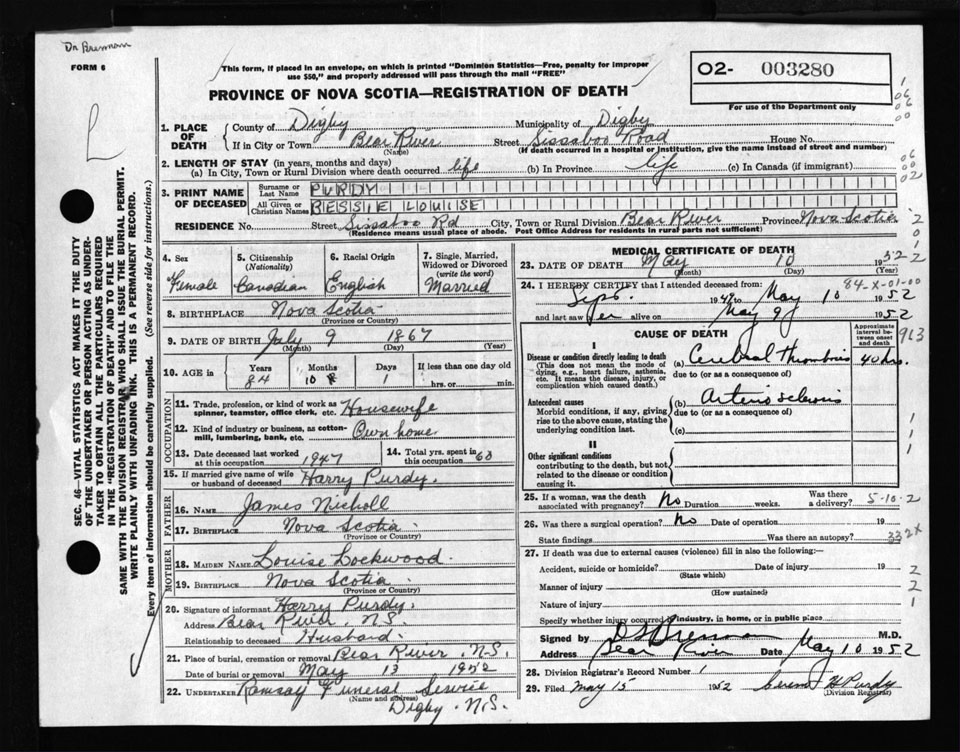 Dr Brennan
FORM 6
This form, if placed in an envelope, on which is printed "Dominion Statistics—Free, penalty for improper
use $50," and properly addressed will pass through the mail "FREE"
PROVINCE OF NOVA SCOTIA—REGISTRATION OF DEATH
02- 003280
For use of the Department only
1. PLACE OF DEATH
County of Digby Municipality of Digby
If in City or Town Bear River Street Sissaboo Road House No.
(Name) (If death occurred in a hospital or institution, give the name instead of street and number)
2. LENGTH OF STAY (in years, months and days)
(a) In City, Town or Rural Division where death occurred life (b) In Province life (c) In Canada (if immigrant)
3. PRINT NAME OF DECEASED
Surname or Last Name PURDY
All Given or Christian Names BESSIE LOUISE
RESIDENCE No. Street Sissaboo Rd City, Town or Rural Division Bear River Province Nova Scotia
(Residence means usual place of abode. Post Office Address for residents in rural parts not sufficient)
4. Sex
Female
5. Citizenship
(Nationality)
Canadian
6. Racial Origin
English
7. Single, Married, Widowed or Divorced
(write the word)
Married
8. BIRTHPLACE Nova Scotia
(Province or Country)
9. DATE OF BIRTH July 9 1867
(Month) (Day) (Year)
10. AGE in
Years Months Days If less than one day old
84 10 1 hrs. or min.
OCCUPATION
11. Trade, profession, or kind of work as
spinner, teamster, office clerk, etc. Housewife
12. Kind of industry or business, as cotton-
mill, lumbering, bank, etc. Own home
13. Date deceased last worked
at this occupation 1947
14. Total yrs. spent in
this occupation 60
15. If married give name of wife
or husband of deceased Harry Purdy.
FATHER
16. Name James Nicholl
17. Birthplace Nova Scotia
(Province or Country)
MOTHER
18. MAIDEN NAME Louise Lockwood.
19. BIRTHPLACE Nova Scotia
(Province or Country)
20. Signature of informant Harry Purdy.
Address Bear River, N.S.
Relationship to deceased Husband.
21. Place of burial, cremation or removal Bear River, N.S.
Date of burial or removal May 13 1952
22. UNDERTAKER Ramsay Funeral Service
(Name and address)
Digby. N.S.
MEDICAL CERTIFICATE OF DEATH
23. DATE OF DEATH May 10 1952
(Month) (Day) (Year)
84-X-01-00
24. I HEREBY CERTIFY that I attended deceased from:
Sept. 1947 to May 10 1952
and last saw her alive on May 9 1952
CAUSE OF DEATH
Approximate interval between onset and death
I
Disease or condition directly leading to death
(This does not mean the mode of dying, e.g., heart failure, asthenia, etc. It means the disease, injury, or complication which caused death.)
(a) Cerebral thrombosis 40 hrs.
due to (or as a consequence of)
Antecedent causes
Morbid conditions, if any, giving rise to the above cause, stating the underlying condition last.
(b) Arterio sclerosis
due to (or as a consequence of)
(c)
II
Other significant conditions
contributing to the death, but not related to the disease or condition causing it.
25. If a woman, was the death
associated with pregnancy? No Duration weeks. Was there a delivery?
5-10-2
26. Was there a surgical operation? No Date of operation 19
State findings Was there an autopsy?
332X
27. If death was due to external causes (violence) fill in also the following:—
Accident, suicide or homicide? Date of injury 19
(State which)
Manner of injury
(How sustained)
Nature of injury
Specify whether injury occurred in industry, in home, or in public place
Signed by Brennan M.D.
Address Bear River Date May 10 1952
28. Division Registrar's Record Number 1
29. Filed May 15 1952 H Purdy
(Division Registrar)
SEC. 46—VITAL STATISTICS ACT MAKES IT THE DUTY
OF THE UNDERTAKER OR PERSON ACTING AS UNDER-
TAKER TO OBTAIN ALL THE PARTICULARS REQUIRED
IN THE "REGISTRATION OF DEATH" AND TO FILE THE
SAME WITH THE DIVISION REGISTRAR WHO SHALL ISSUE THE BURIAL PERMIT.
WRITE PLAINLY WITH UNFADING INK. THIS IS A PERMANENT RECORD.
Every item of information should be carefully supplied. (See reverse side for instructions.)